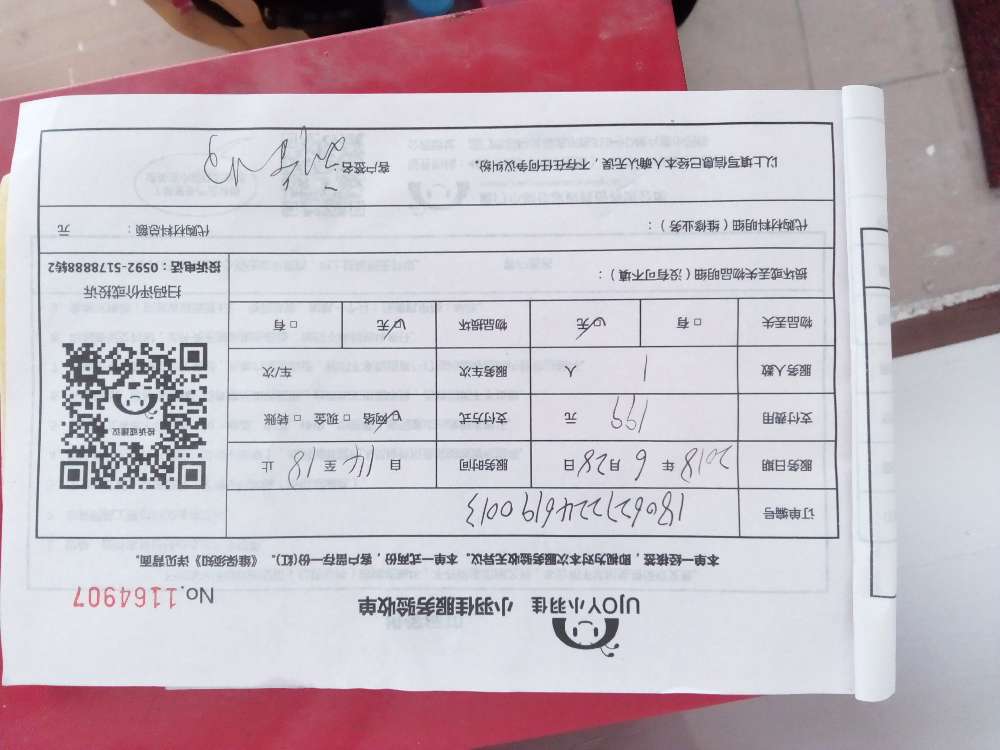 UJOY小羽佳 小羽佳服务验收单 No.1164907
本单一经签核，即视为对本次服务验收无异议。本单一式两份，客户留存一份(红)。《维保须知》详见背面。
订单编号 1806272246190013
服务日期 2018 年 6 月 28 日 服务时间 日 14 至 18 止
支付费用 199 元 支付方式 ☑网络 □现金 □转账
服务人数 1 人 服务车次 车/次
物品丢失 □有 ☑无 物品损坏 ☑无 □有
投诉或建议
扫码评价或投诉
投诉电话：0592-5178888转2
损坏或丢失物品明细（没有可不填）：
代购材料明细（维修业务）： 代购材料总额： 元
以上填写信息已经本人确认无误，不存在任何争议纠纷。 客户签名：